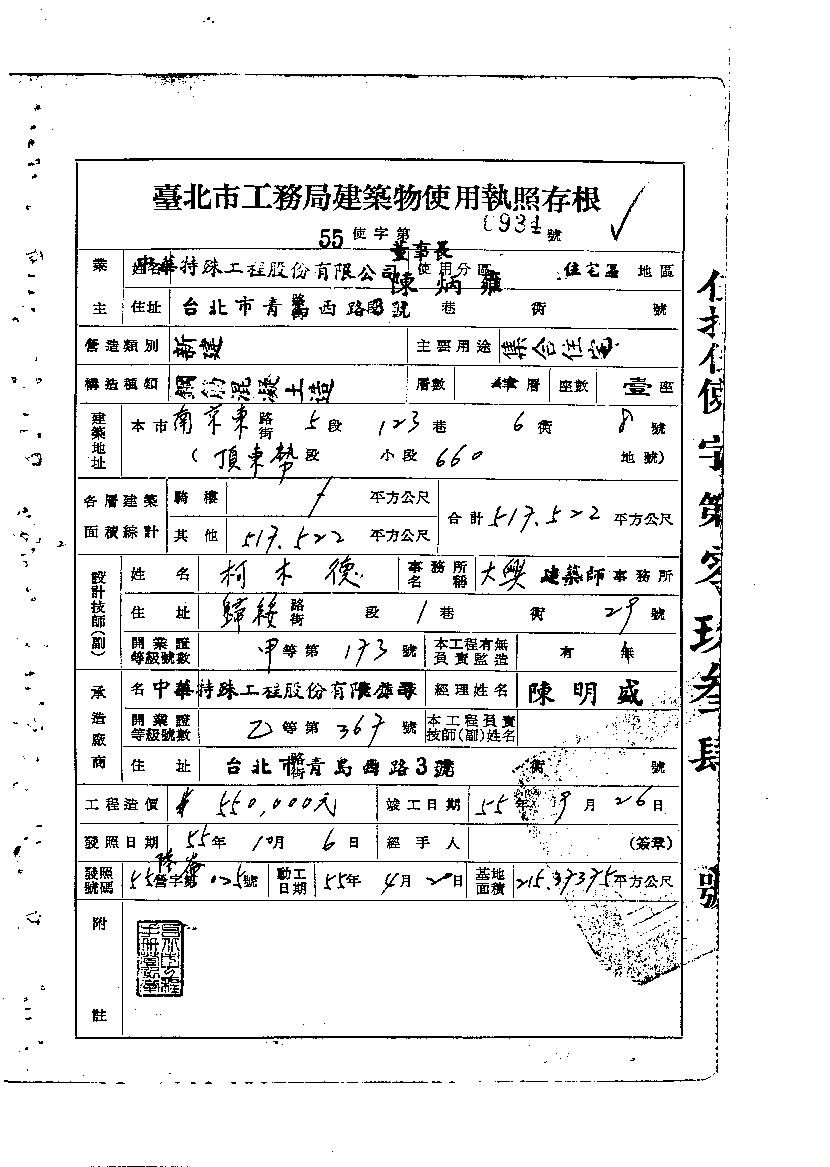 臺北市工務局建築物使用執照存根
55使字第0934號
業主 姓名 中華特殊工程股份有限公司 董事長 陳炳雍 使用分區 住宅區 地區
住址 台北市青島西路3號 巷 衖 號
營造類別 新建 主要用途 集合住宅
構造種類 鋼筋混凝土造 層數 層 座數 壹座
建築地址 本市南京東路街 5段 123巷 6衖 8號
(頂東勢段 小段 660 地號)
各層建築面積綜計 騎樓 / 平方公尺 合計 517.522 平方公尺
其他 517.522 平方公尺
設計技師(副) 姓名 柯木德 事務所名稱 大興建築師事務所
住址 歸綏路街 段 1巷 衖 29號
開業證等級號數 甲等第173號 本工程有無負責監造 有 無
承造廠商 名 中華特殊工程股份有限 經理姓名 陳明盛
開業證等級號數 乙等第367號 本工程負責技師(副)姓名
住址 路街 台北市青島西路3號 衖 號
工程造價 550,000元 竣工日期 55年9月26日
發照日期 55年10月6日 經手人 (簽章)
發照號碼 55營字第025號 動工日期 55年4月20日 基地面積 215.37375平方公尺
附註
伍拾伍使字第零玖叁肆號